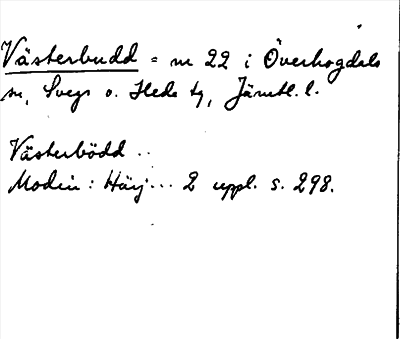 Västerbudd = nr 22 i Överhogdals
sn, Svegs o. Hede tg, Jämtl. l.
Västerbödd ..
Modin: Härj... 2 uppl. s. 298.